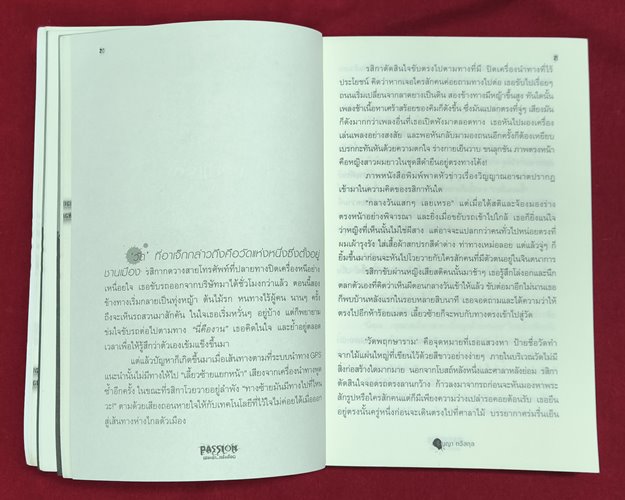 'วัด' ที่อาเจ็กกล่าวถึงคือวัดแห่งหนึ่งซึ่งตั้งอยู่
ชานเมือง รสิกากดวางสายโทรศัพท์ที่ปลายทางปิดเครื่องหนีอย่าง
เหนื่อยใจ เธอขับรถออกจากบริษัทมาได้ชั่วโมงกว่าแล้ว ตอนนี้สอง
ข้างทางเริ่มกลายเป็นทุ่งหญ้า ต้นไม้รก หนทางไร้ผู้คน นานๆ ครั้ง
ถึงจะเห็นรถสวนมาสักคัน ในใจเธอเริ่มหวั่นๆ อยู่บ้าง แต่ก็พยายาม
ข่มใจขับรถต่อไปตามทาง "นี่คืองาน" เธอคิดในใจ และย้ำอยู่ตลอด
เวลาเพื่อให้รู้สึกว่าตัวเองเข้มแข็งขึ้นมา
แต่แล้วปัญหาก็เกิดขึ้นมาเมื่อเส้นทางตามที่ระบบนำทาง GPS
แนะนำนั้นไม่มีทางให้ไป "เลี้ยวซ้ายแยกหน้า" เสียงจากเครื่องนำทางพูด
ซ้ำอีกครั้ง ในขณะที่รสิกาโวยวายอยู่ลำพัง "ทางซ้ายมันมีทางไปที่ไหน
วะ!" ตามด้วยเสียงถอนหายใจให้กับเทคโนโลยีที่ไว้ใจไม่ค่อยได้เมื่อออก
สู่เส้นทางห่างไกลตัวเมือง
PASSION
รสิกาตัดสินใจขับตรงไปตามทางที่มี ปิดเครื่องนำทางที่ไร้
ประโยชน์ คิดว่าหากเจอใครสักคนค่อยถามทางไปต่อ เธอขับไปเรื่อยๆ
ถนนเริ่มเปลี่ยนจากลาดยางเป็นดิน สองข้างทางมีหญ้าขึ้นสูง ทันใดนั้น
เพลงช้าเนื้อหาเศร้าสร้อยของคิมก็ดังขึ้น ซึ่งมันแปลกตรงที่จู่ๆ เสียงมัน
ก็ดังมากกว่าเพลงอื่นที่เธอเปิดฟังมาตลอดทาง เธอหันไปมองเครื่อง
เล่นเพลงอย่างสงสัย และพอหันกลับมามองถนนอีกครั้งก็ต้องเหยียบ
เบรกกะทันหันด้วยความตกใจ ร่างกายเย็นวาบ ขนลุกชัน ภาพตรงหน้า
คือหญิงสาวผมยาวในชุดสีดำยืนอยู่ตรงทางโค้ง!
ภาพหนังสือพิมพ์พาดหัวข่าวเรื่องวิญญาณอาฆาตปรากฏ
เข้ามาในความคิดของรสิกาทันใด
"กลางวันแสกๆ เลยเหรอ" แต่เมื่อได้สติและจ้องมองร่าง
ตรงหน้าอย่างพิจารณา และยิ่งเมื่อขยับรถเข้าไปใกล้ เธอก็ยิ่งแน่ใจ
ว่าหญิงที่เห็นนั้นไม่ใช่ผีสาง แต่อาจจะแปลกกว่าคนทั่วไปหน่อยตรงที่
ผมเผ้ายุ่งรุงรัง ใส่เสื้อผ้าสกปรกสีดำด่าง ท่าทางเหม่อลอย แต่แล้วจู่ๆ ก็
ยิ้มขึ้นมาก่อนจะหันไปโวยวายกับใครสักคนที่มีตัวตนอยู่ในจินตนาการ
รสิกาขับผ่านหญิงเสียสติคนนั้นมาช้าๆ เธอรู้สึกโล่งอกและนึก
ตลกตัวเองที่คิดว่าเห็นผีตอนกลางวันเข้าให้แล้ว ขับต่อมาอีกไม่นานเธอ
ก็พบบ้านหลังแรกในรอบหลายสิบนาที เธอจอดถามและได้ความว่าให้
ตรงไปอีกห้าร้อยเมตร เลี้ยวซ้ายก็จะพบกับทางตรงเข้าไปสู่วัด
'วัดพฤกษาราม' คือจุดหมายที่เธอแสวงหา ป้ายชื่อวัดทำ
จากไม้แผ่นใหญ่ที่เขียนไว้ด้วยสีขาวอย่างง่ายๆ ภายในบริเวณวัดไม่มี
สิ่งก่อสร้างใดมากมาย นอกจากโบสถ์หลังหนึ่งและศาลาหลังย่อม รสิกา
ตัดสินใจจอดรถตรงลานกว้าง ก้าวลงมาจากรถก่อนจะหันมองหาพระ
สักรูปหรือใครสักคนแต่ก็มีเพียงความว่างเปล่ารอคอยต้อนรับ เธอยืน
อยู่ตรงนั้นครู่หนึ่งก่อนจะเดินตรงไปที่ศาลาไม้ บรรยากาศร่มรื่นเย็น